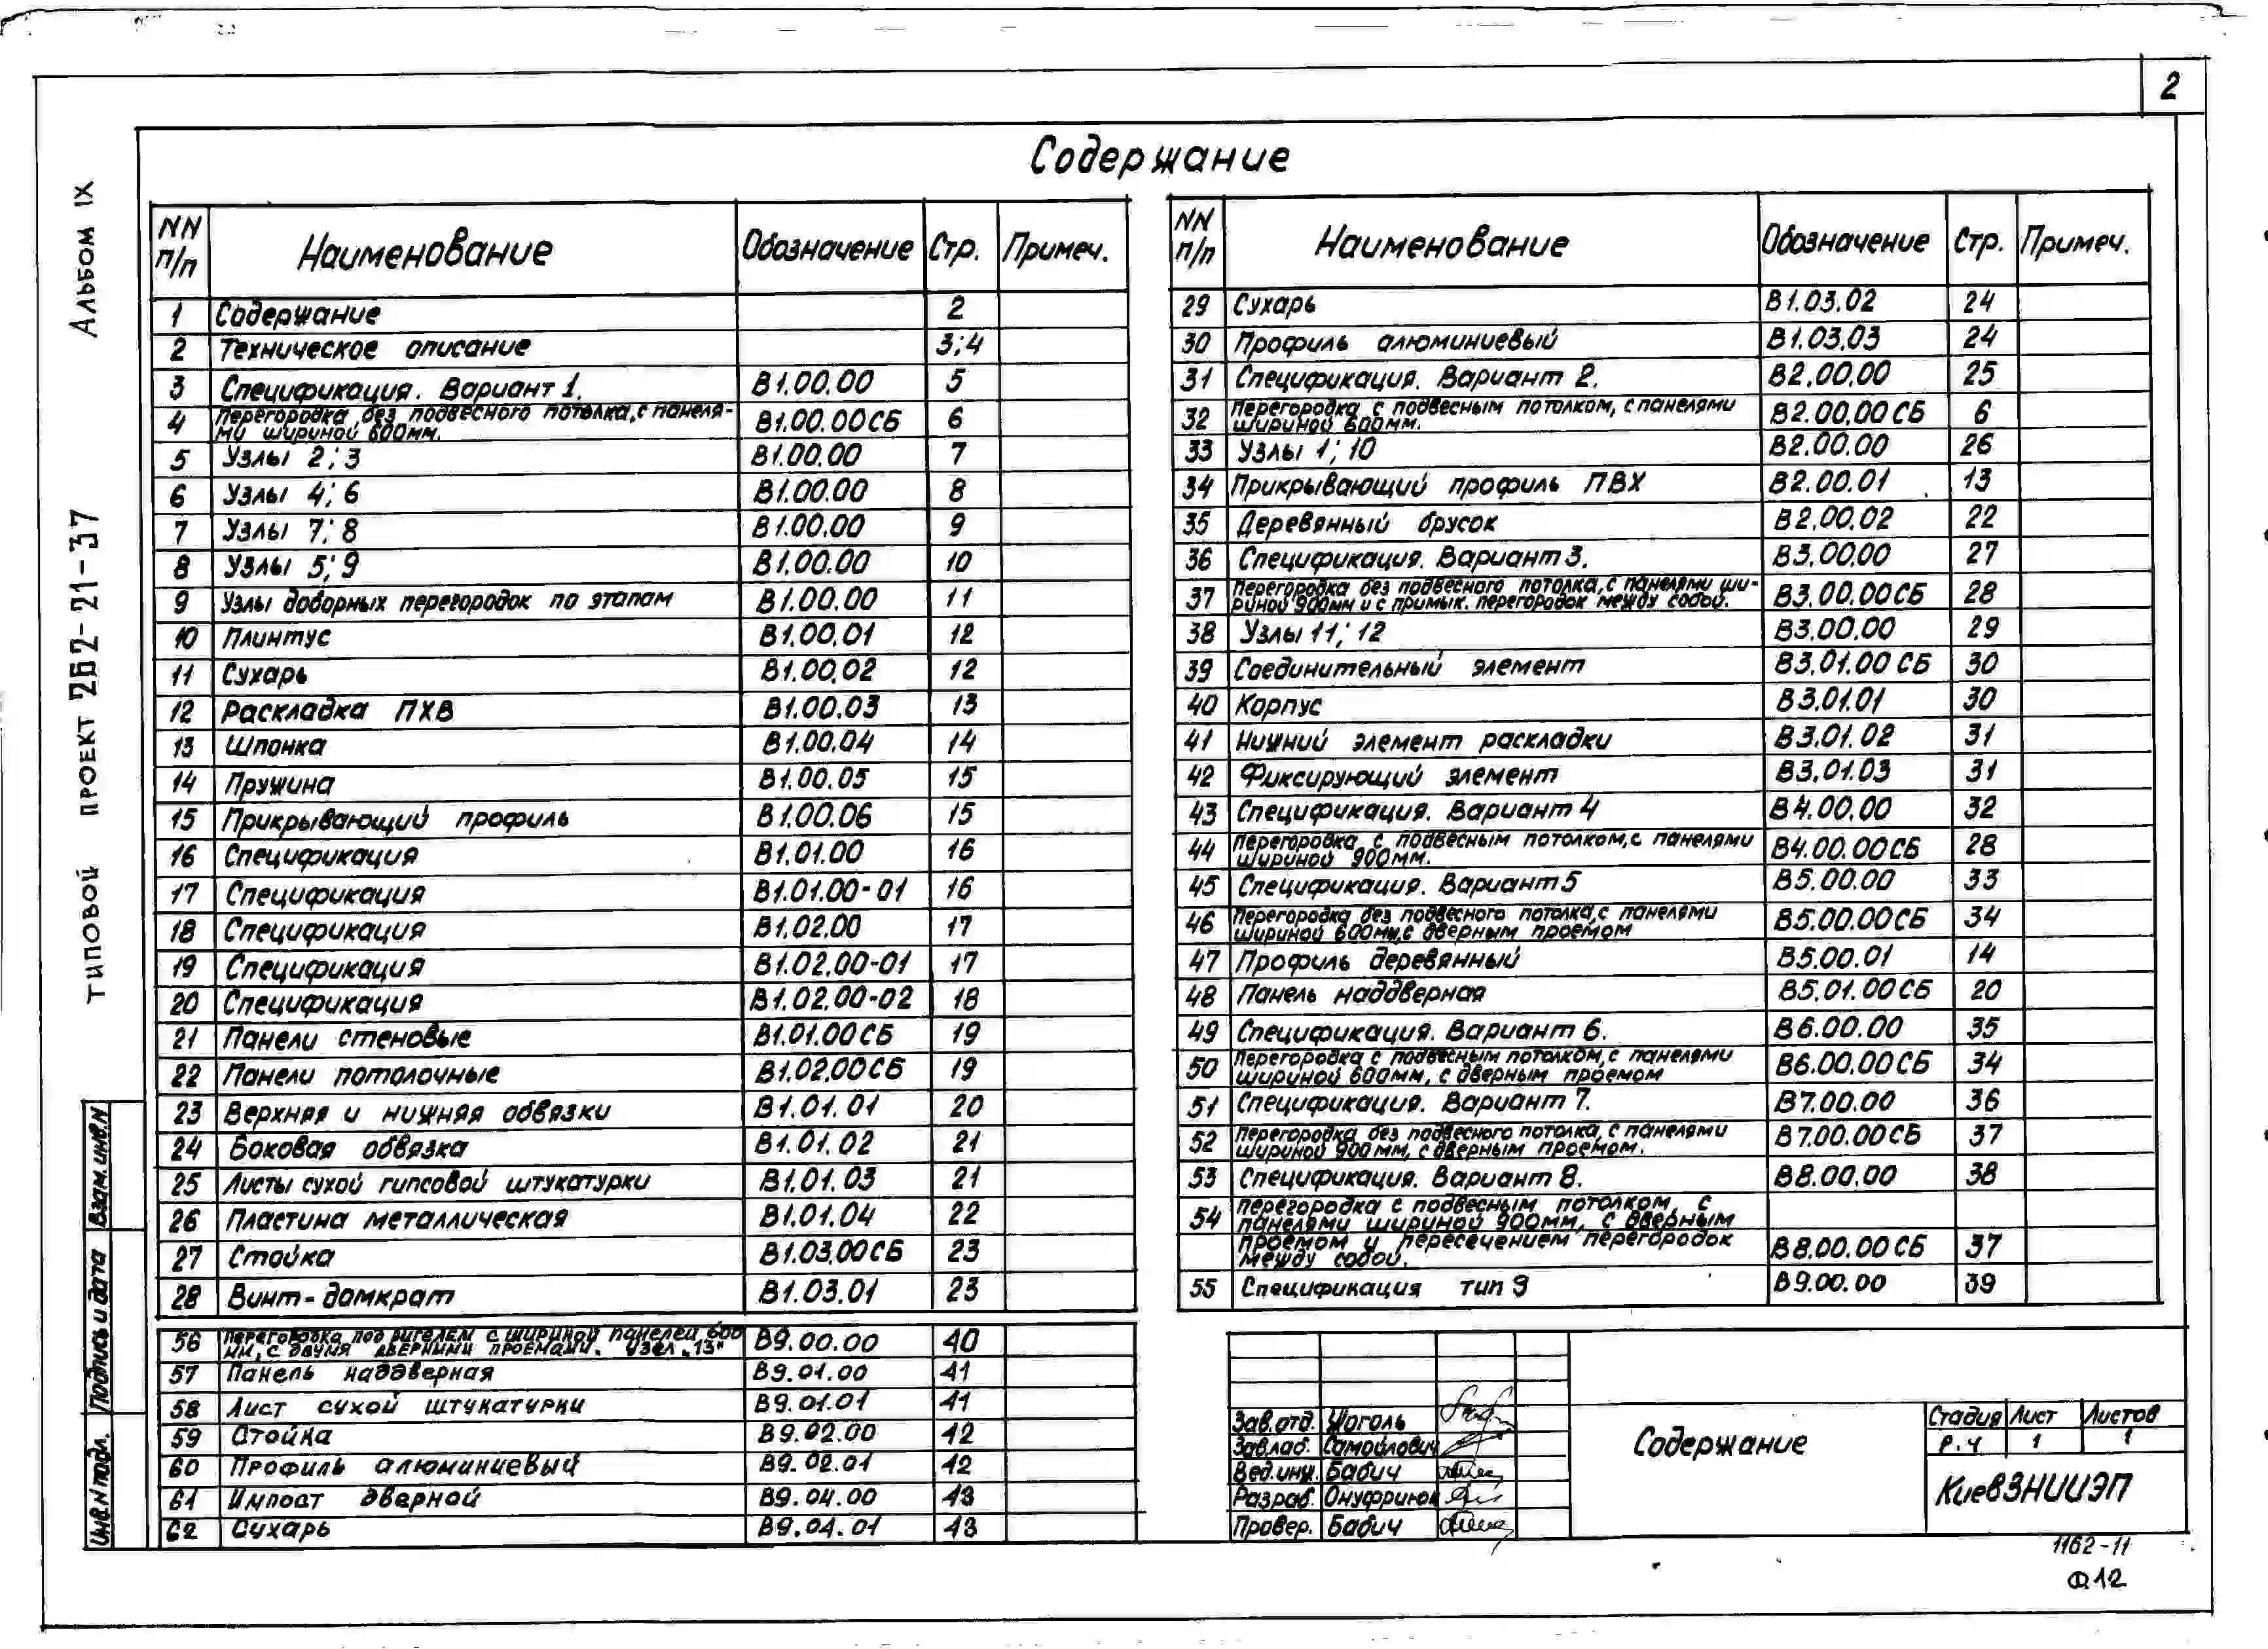 2
Содержание
ТИПОВОЙ ПРОЕКТ 262-21-37 АЛЬБОМ IX
NN п/п Наименование Обозначение Стр. Примеч.
1 Содержание 2
2 Техническое описание 3;4
3 Спецификация. Вариант 1. В1.00.00 5
4 Перегородка без подвесного потолка, с панеля-
ми шириной 600мм. В1.00.00СБ 6
5 Узлы 2; 3 В1.00.00 7
6 Узлы 4; 6 В1.00.00 8
7 Узлы 7; 8 В1.00.00 9
8 Узлы 5; 9 В1.00.00 10
9 Узлы доборных перегородок по этапам В1.00.00 11
10 Плинтус В1.00.01 12
11 Сухарь В1.00.02 12
12 Раскладка ПХВ В1.00.03 13
13 Шпонка В1.00.04 14
14 Пружина В1.00.05 15
15 Прикрывающий профиль В1.00.06 15
16 Спецификация В1.01.00 16
17 Спецификация В1.01.00-01 16
18 Спецификация В1.02.00 17
19 Спецификация В1.02.00-01 17
20 Спецификация В1.02.00-02 18
21 Панели стеновые В1.01.00СБ 19
22 Панели потолочные В1.02.00СБ 19
23 Верхняя и нижняя обвязки В1.01.01 20
24 Боковая обвязка В1.01.02 21
25 Листы сухой гипсовой штукатурки В1.01.03 21
26 Пластина металлическая В1.01.04 22
27 Стойка В1.03.00СБ 23
28 Винт-домкрат В1.03.01 23
56 Перегородка под ригелем с шириной панелей 600
мм, с двумя дверными проемами. Узел „13" В9.00.00 40
57 Панель наддверная В9.01.00 41
58 Лист сухой штукатурки В9.01.01 41
59 Стойка В9.02.00 42
60 Профиль алюминиевый В9.02.01 42
61 Импост дверной В9.04.00 43
62 Сухарь В9.04.01 43
NN п/п Наименование Обозначение Стр. Примеч.
29 Сухарь В1.03.02 24
30 Профиль алюминиевый В1.03.03 24
31 Спецификация. Вариант 2. В2.00.00 25
32 Перегородка с подвесным потолком, с панелями
шириной 600мм. В2.00.00СБ 6
33 Узлы 1; 10 В2.00.00 26
34 Прикрывающий профиль ПВХ В2.00.01 13
35 Деревянный брусок В2.00.02 22
36 Спецификация. Вариант 3. В3.00.00 27
37 Перегородка без подвесного потолка, с панелями ши-
риной 900мм и с примык. перегородок между собой. В3.00.00СБ 28
38 Узлы 11; 12 В3.00.00 29
39 Соединительный элемент В3.01.00СБ 30
40 Корпус В3.01.01 30
41 Нижний элемент раскладки В3.01.02 31
42 Фиксирующий элемент В3.01.03 31
43 Спецификация. Вариант 4 В4.00.00 32
44 Перегородка с подвесным потолком, с панелями
шириной 900мм. В4.00.00СБ 28
45 Спецификация. Вариант 5 В5.00.00 33
46 Перегородка без подвесного потолка, с панелями
шириной 600мм, с дверным проемом В5.00.00СБ 34
47 Профиль деревянный В5.00.01 14
48 Панель наддверная В5.01.00СБ 20
49 Спецификация. Вариант 6. В6.00.00 35
50 Перегородка с подвесным потолком, с панелями
шириной 600мм, с дверным проемом В6.00.00СБ 34
51 Спецификация. Вариант 7. В7.00.00 36
52 Перегородка без подвесного потолка, с панелями
шириной 900мм, с дверным проемом. В7.00.00СБ 37
53 Спецификация. Вариант 8. В8.00.00 38
54 Перегородка с подвесным потолком, с
панелями шириной 900мм, с дверным
проемом и пересечением перегородок
между собой. В8.00.00СБ 37
55 Спецификация тип 9 В9.00.00 39
Зав.отд. Жоголь
Зав.лаб. Самойлович
Вед.инж. Бабич
Разраб. Онуфриюк
Провер. Бабич
Содержание
Стадия Лист Листов
Р.Ч 1 1
КиевЗНИИЭП
1162-11
Ф.12
Взам.инв.N
Подпись и дата
Инв.N подл.